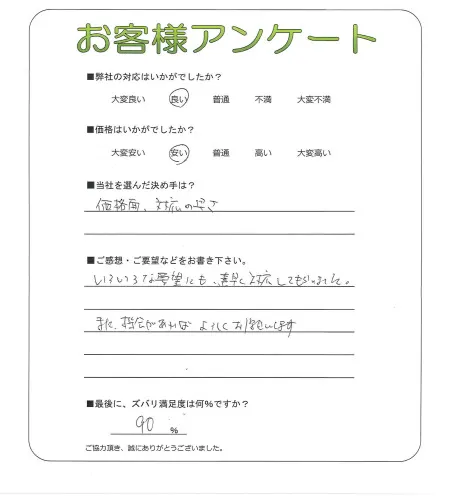 お客様アンケート
■弊社の対応はいかがでしたか？
大変良い 良い 普通 不満 大変不満
■価格はいかがでしたか？
大変安い 安い 普通 高い 大変高い
■当社を選んだ決め手は？
価格面、対応の早さ
■ご感想・ご要望などをお書き下さい。
いろいろな要望にも、素早く対応してもらいました。
また、機会があれば よろしくお願いします
■最後に、ズバリ満足度は何%ですか？
90 %
ご協力頂き、誠にありがとうございました。